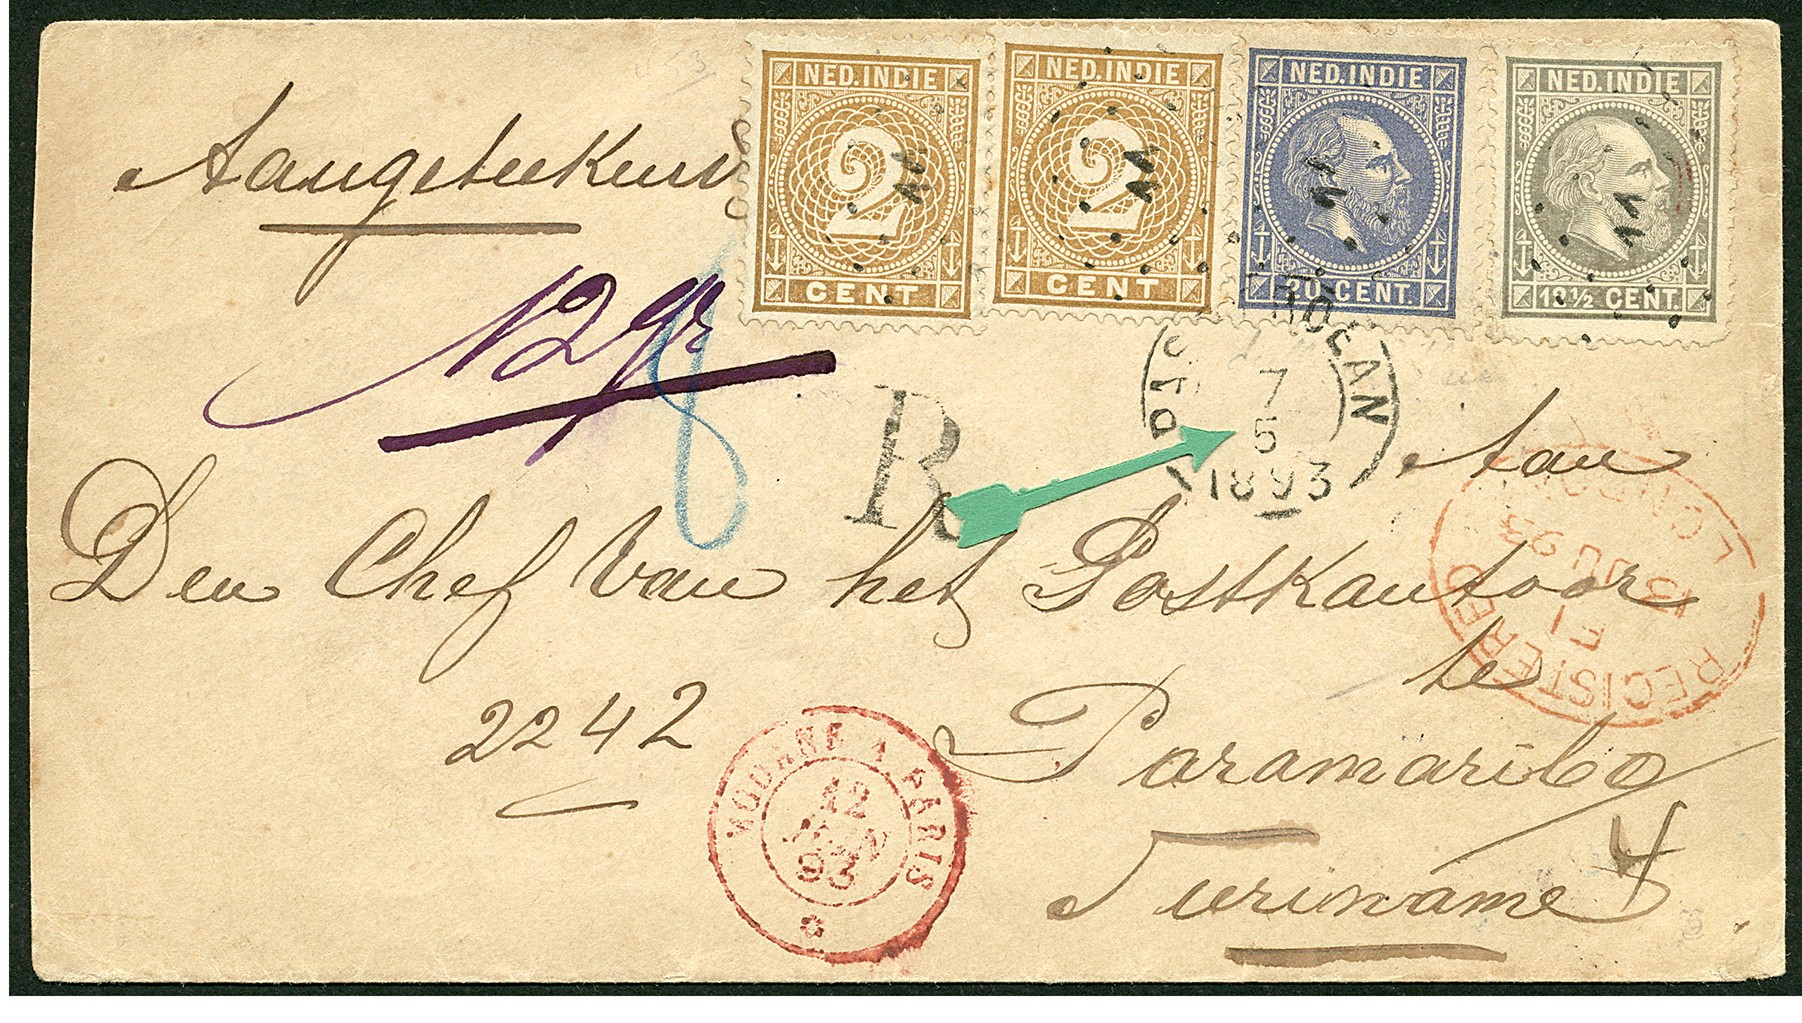 NED.INDIE
2
CENT
NED.INDIE
2
CENT
NED.INDIE
20 CENT.
NED.INDIE
12½ CENT.
11
11
11
11
Aangeteekend
12 gr
8
R
7
5
1893
Aan
Den Chef van het Postkantoor
te
Paramaribo
Suriname
2242
4
MODANE A PARIS
12
JUIN
93
REGISTERED
LONDON
F1
13 JU 93